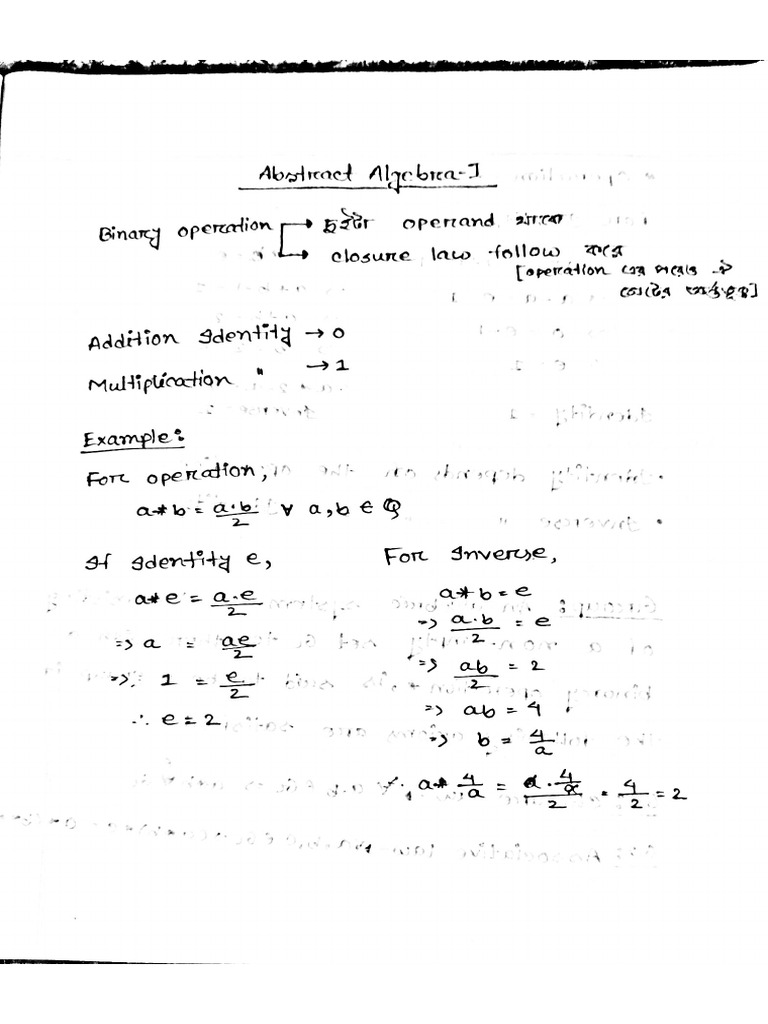 Abstract Algebra-I
Binary operation → দুইটা operand থাকে
→ closure law follow করে
[operation এর পরেও ঐ
সেটের অন্তর্ভুক্ত]
Addition Identity → 0
Multiplication " → 1
Example:
For operation,
a*b = a·b/2 ∀ a,b ∈ Q
If Identity e,
a*e = a·e/2
=> a = ae/2
=> 1 = e/2
∴ e = 2
For Inverse,
a*b = e
=> a·b/2 = e
=> ab/2 = 2
=> ab = 4
=> b = 4/a
∴ a* 4/a = a·4/a/2 = 4/2 = 2